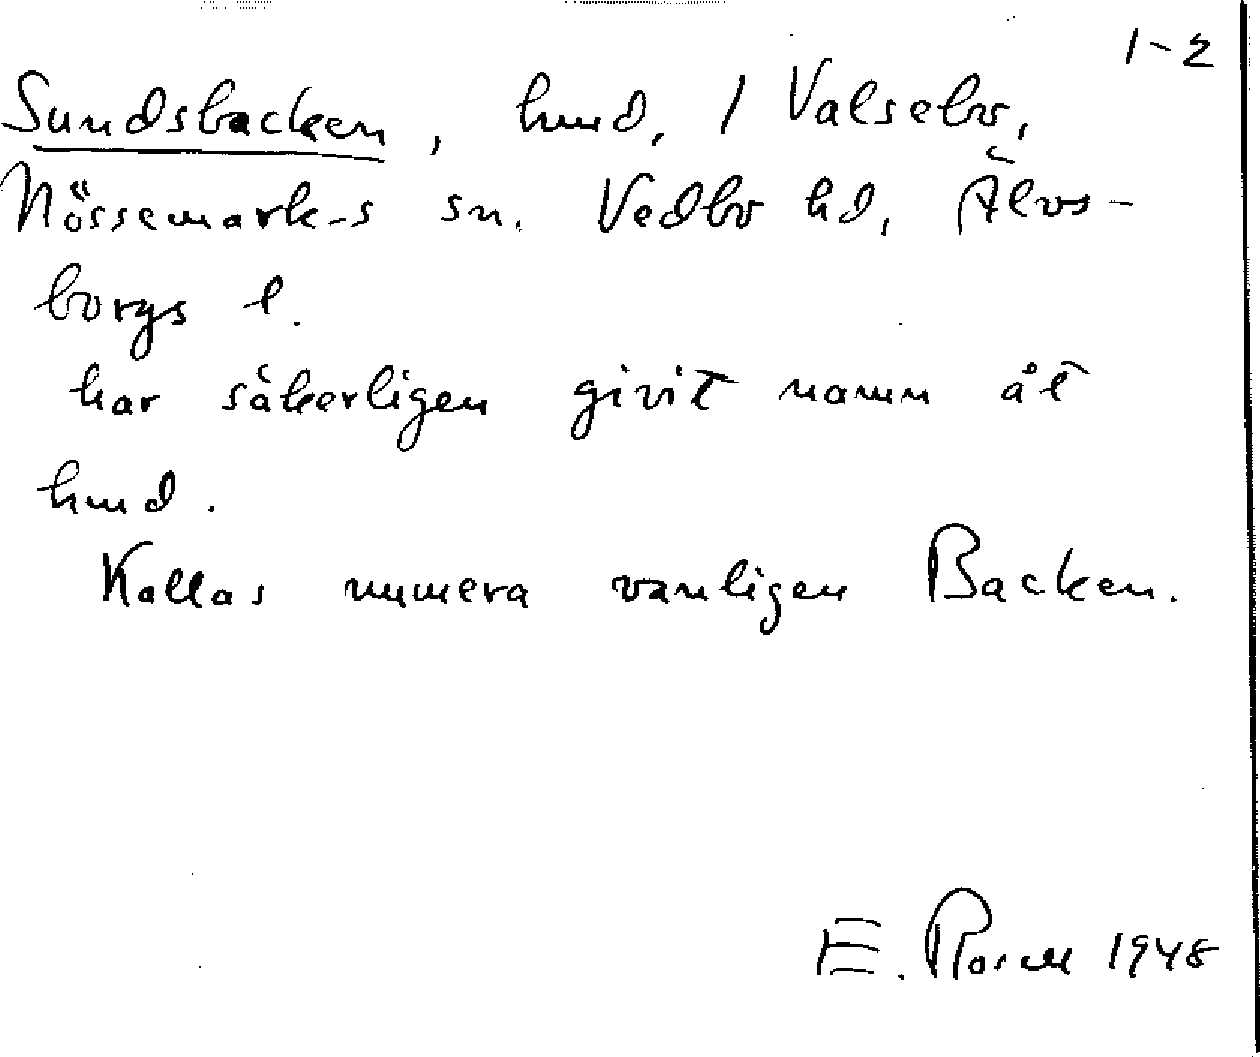 1-2
Sundsbacken, hmd, 1 Valsebo,
Nössemark-s sn. Vedbo hd, Älvs-
borgs l.
har säkerligen givit namn åt
hmd.
Kallas numera vanligen Backen.
E. Rosell 1948